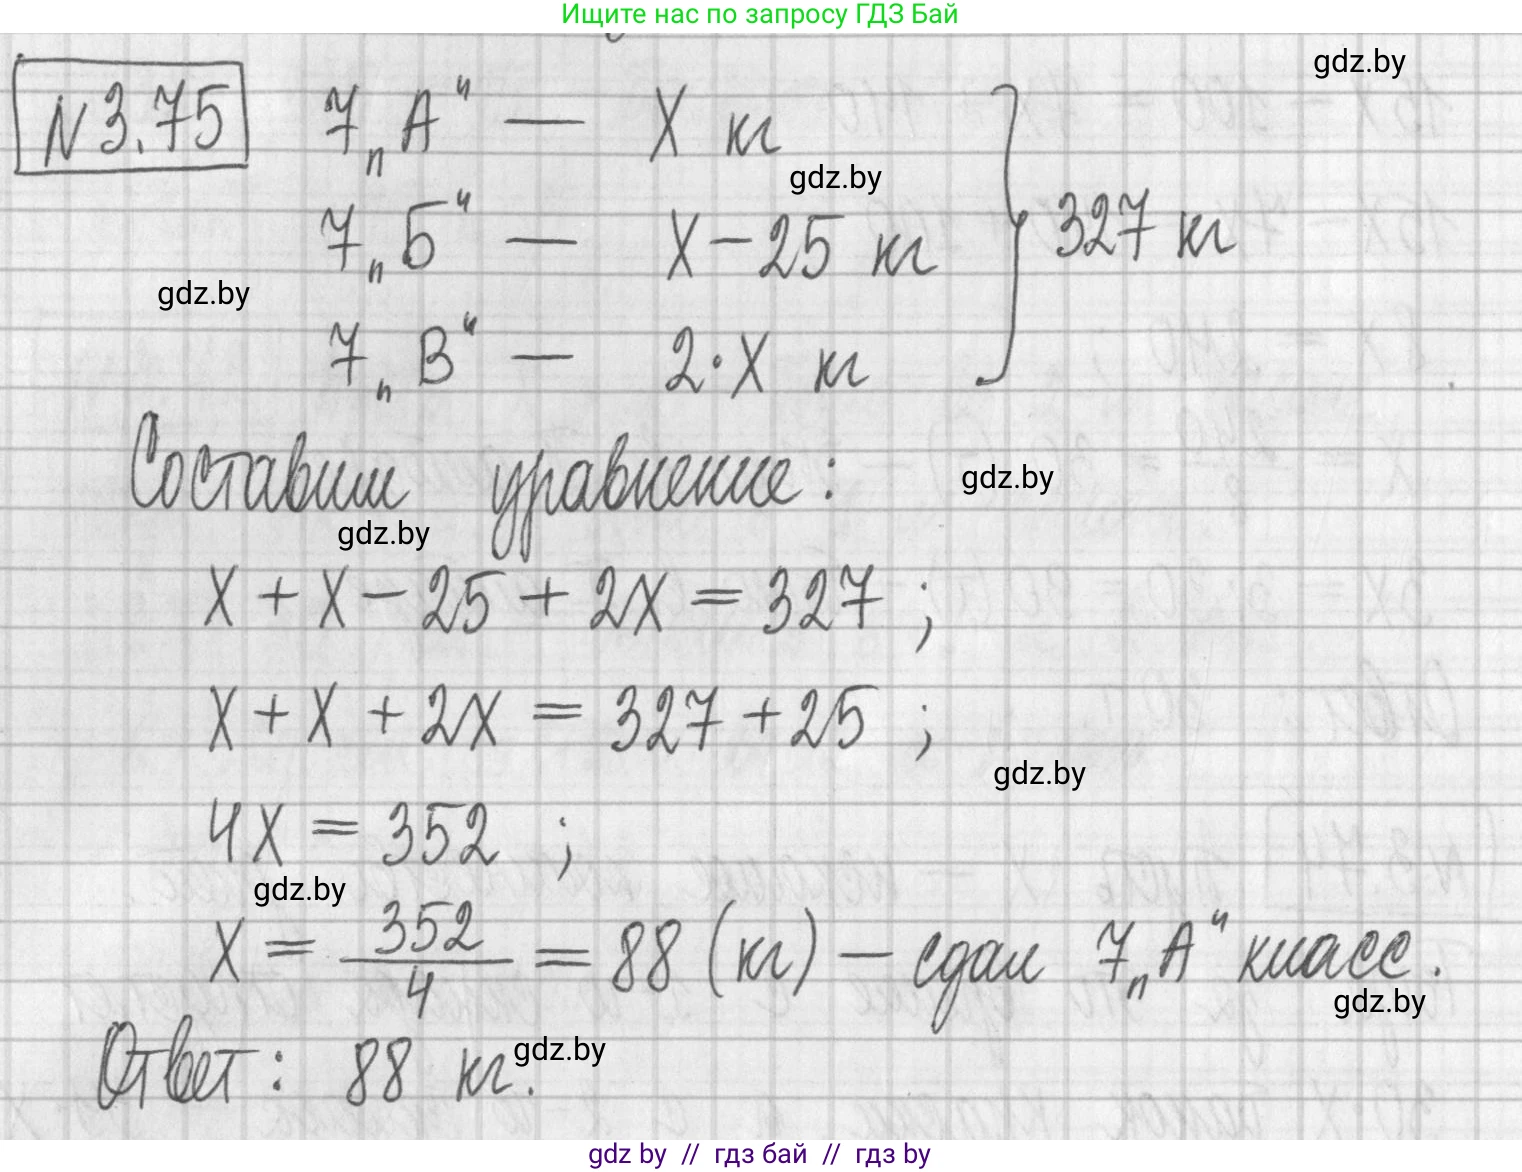 Ищите нас по запросу ГДЗ Бай
gdz.by
№3.75 7 „А“ — x кг
gdz.by
7 „Б“ — x-25 кг 327 кг
gdz.by
7 „В“ — 2·x кг
Составим уравнение:
gdz.by
gdz.by
x + x - 25 + 2x = 327 ;
x + x + 2x = 327 + 25 ;
gdz.by
4x = 352 ;
gdz.by
x = 352/4 = 88 (кг) — сдал 7 „А“ класс.
gdz.by
Ответ: 88 кг.
gdz.by
gdz by // гдз бай // гдз by